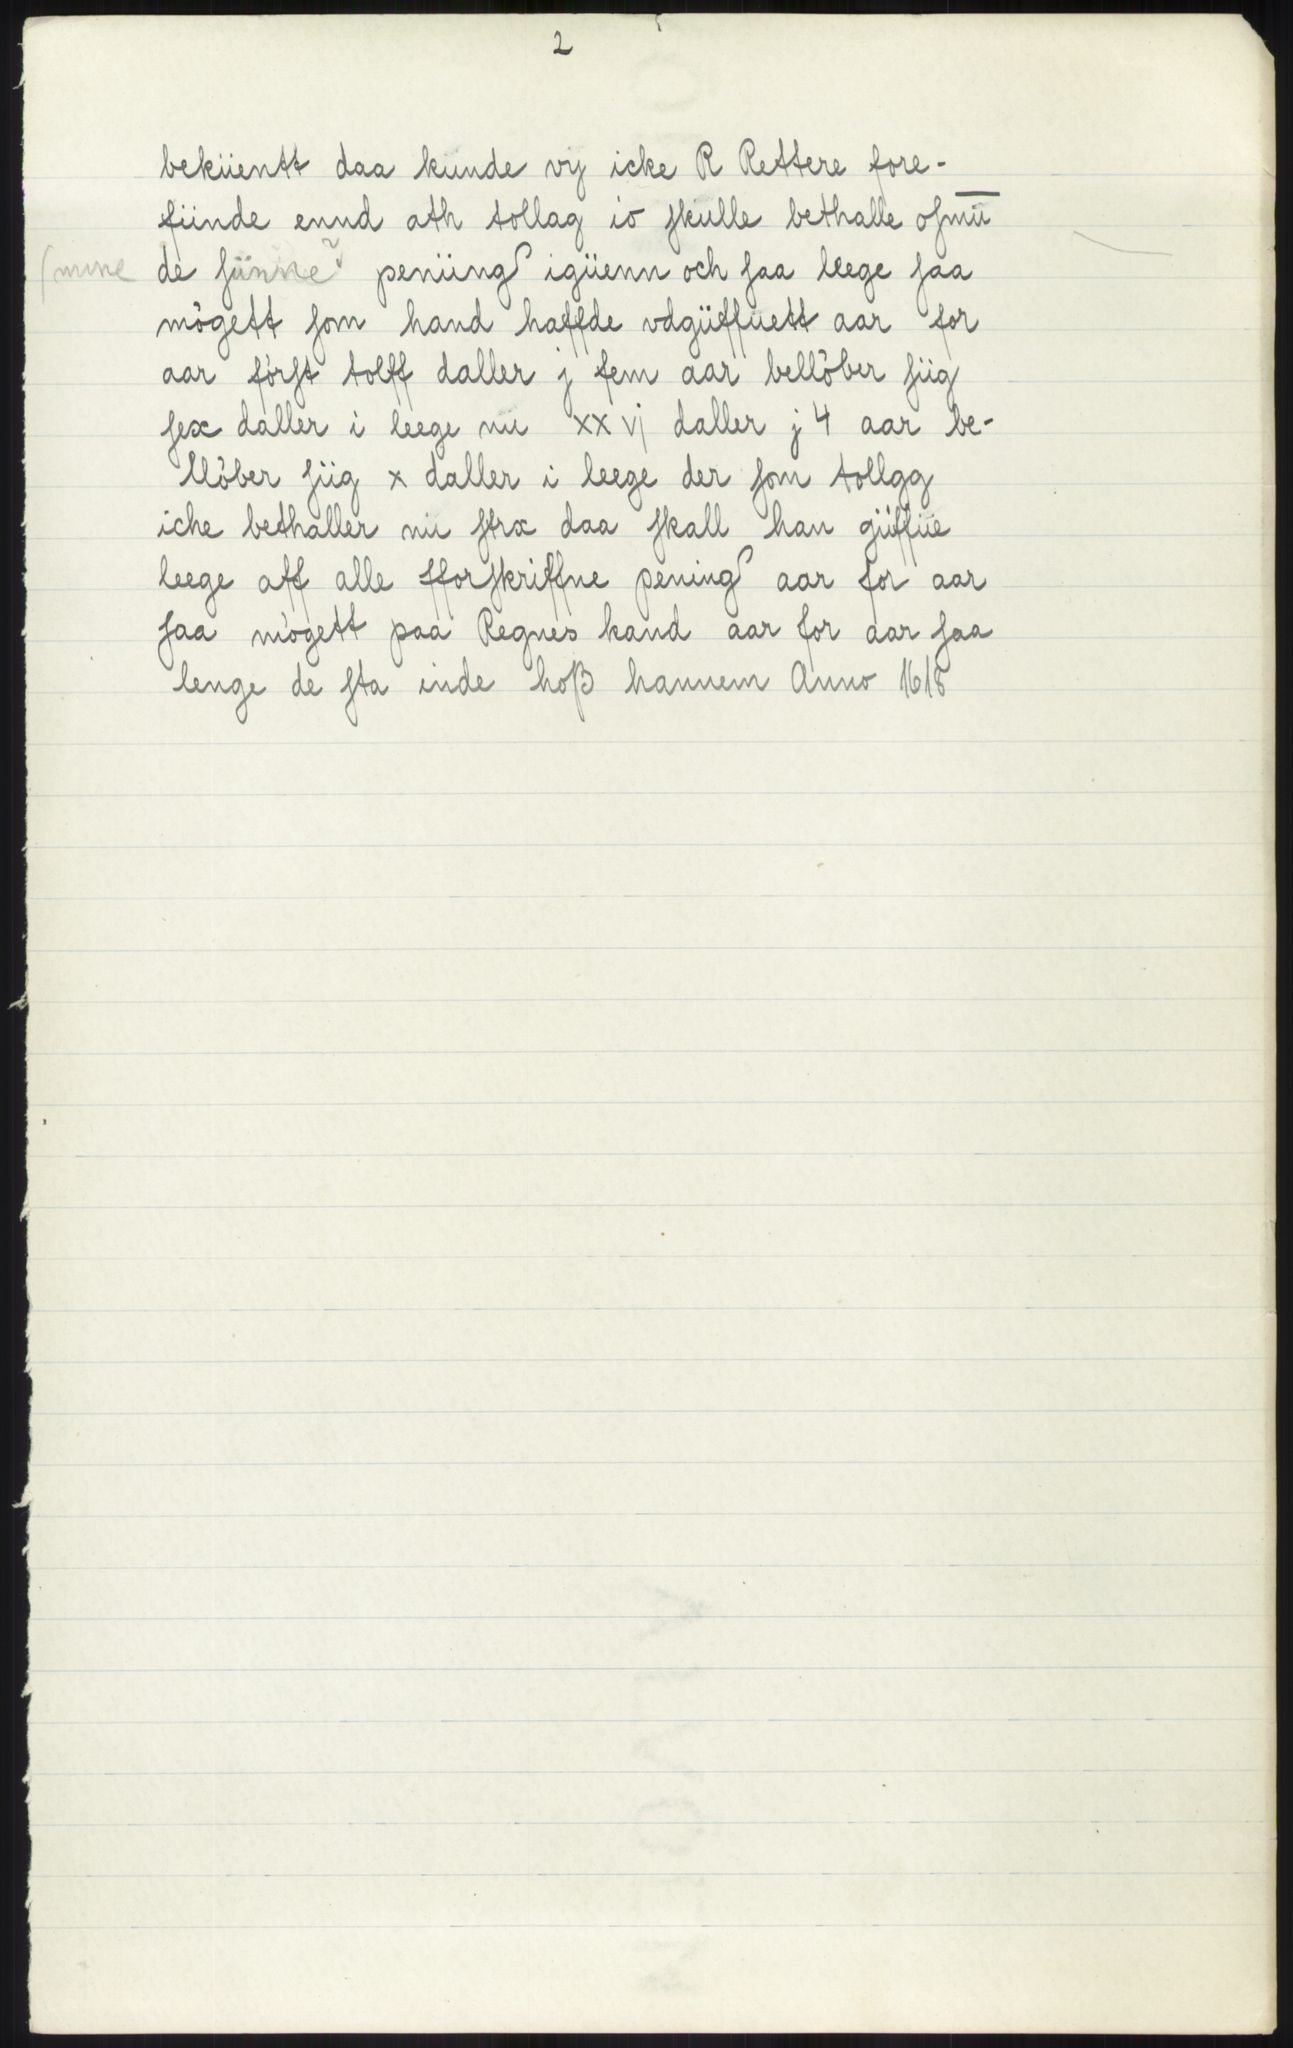 2
beküentt daa kunde vij icke R Rettere fore-
fiinde ennd ath tollag io skulle bethalle osmū
(mine de siinne? peniing igüenn och saa leege saa
mögett som hand haffde vdgüffuett aar for
aar först tolff daller j fem aar bellöber siig
sex daller i leege nu xx vj daller j 4 aar be-
llöber siig x daller i leege der som tollgg
iche bethaller nu strx daa skall han güffüe
leege aff alle fforskriffne pening aar for aar
saa mögett paa Regnes kand aar for aar saa
lenge de sta inde hoß hannem Anno 1618